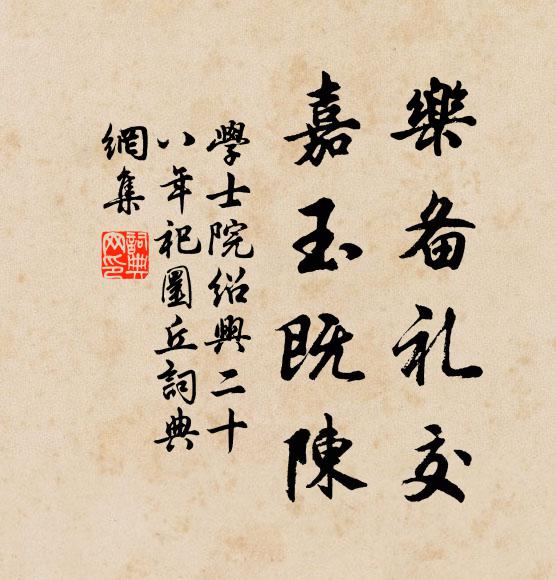 樂备礼交
嘉玉既陳
學士院紹興二十
八年祀圜丘詞典
網集
詞典
网印